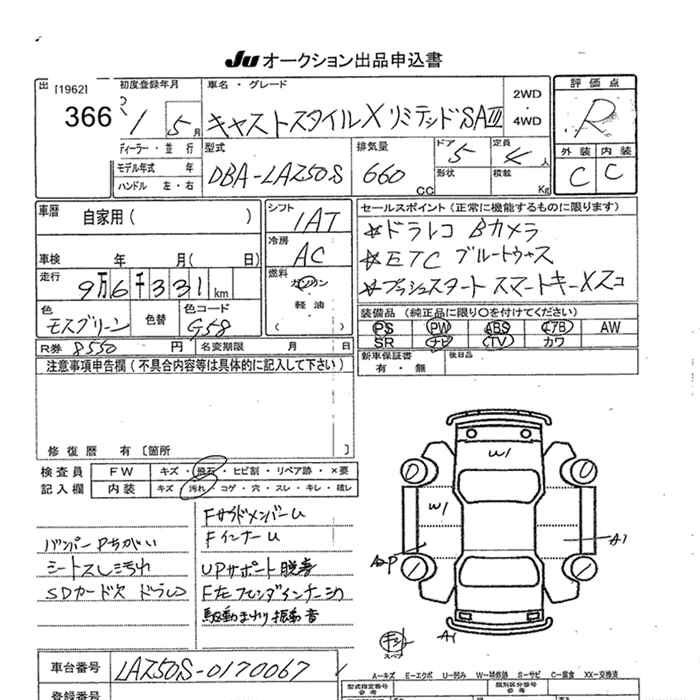 Ju オークション出品申込書
出 [1962] 366
初度登録年月 R 1 5 月
車名・グレード キャストスタイルX リミテッドSAⅢ
2WD ・ 4WD
評価点 R
外装 内装
C C
ディーラー・並行
モデル年式 年
ハンドル 左・右
型式 DBA-LA250S
排気量 660 CC
ドア 5 定員 4 人
形状 積載 Kg
車暦 自家用( )
車検 年 月( 日)
走行 9万6千331 km
色 モスグリーン 色替 色コード G58
R券 8550 円 名変期限 月 日
シフト 1AT
冷房 AC
燃料 ガソリン ・ 軽油 ・ ( )
セールスポイント(正常に機能するものに限ります)
☆ドラレコ Bカメラ
☆ETC ブルートゥース
☆プッシュスタート スマートキーXスコ
装備品(純正品に限り○を付けてください)
PS PW ABS エアB AW
SR ナビ TV カワ
新車保証書 有・無 後日品
注意事項申告欄(不具合内容等は具体的に記入して下さい)
修復暦 有〔箇所
検査員記入欄
FW キズ・飛石・ヒビ割・リペア跡・×要
内装 キズ・汚れ・コゲ・穴・スレ・キレ・破レ
バンパーPちがい
シートスレ汚れ
SDカード欠 ドラレコ
FサイドメンバーU
FインナーU
UPサポート脱着
F左フェンダインナー
駆動まわり振動音
W1
W1
A1
A1
スペア
車台番号 LA250S-0170067
登録番号
型式指定番号 参考
類別区分番号 参考
A－キズ E－エクボ U－凹み W－補修跡 S－サビ C－腐食 XX－交換済